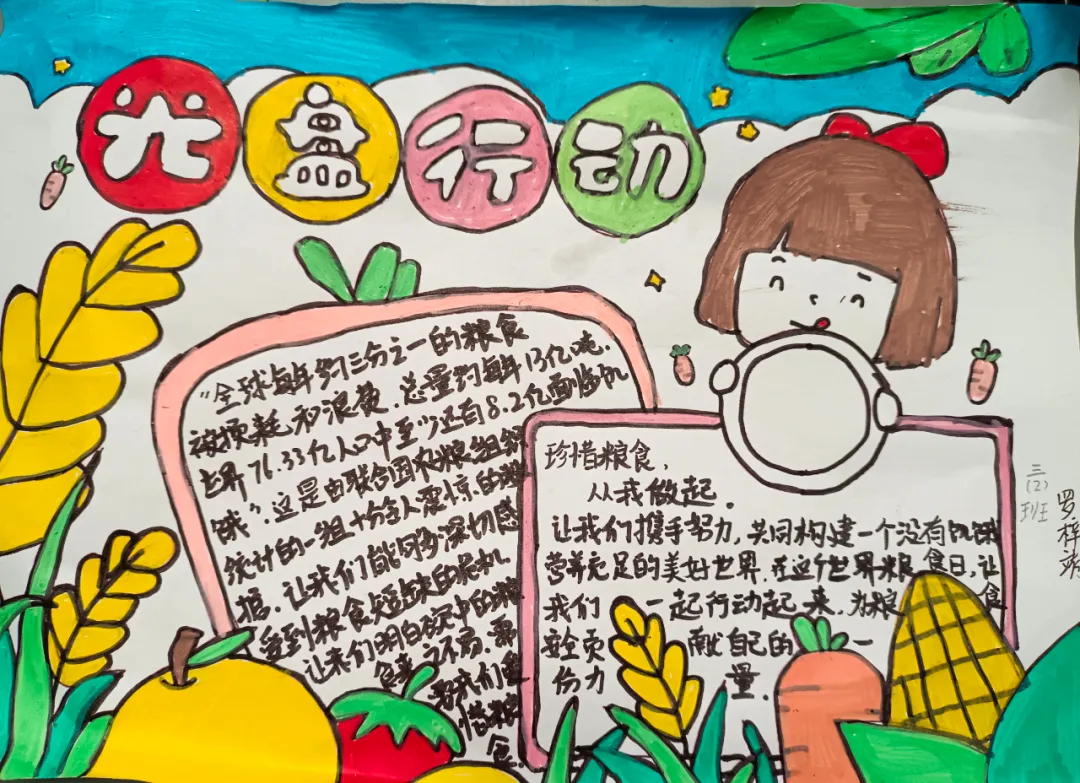 光盘行动
"全球每年约三分之一的粮食
被损耗和浪费.总量约每年13亿吨.
世界76.33亿人口中至少还有8.2亿面临饥
饿".这是由联合国农粮组织
统计的一组十分令人震惊的数
据.让我们能够深切感
受到粮食短缺的危机
让我们明白碗中的粮
食来之不易.需
要我们
惜粮
食.
珍惜粮食,
从我做起.
让我们携手努力,共同构建一个没有饥饿
营养充足的美好世界.在这个世界粮食日,让
我们一起行动起来.为粮食
安全贡献自己的一
份力量.
三(2)班
罗梓